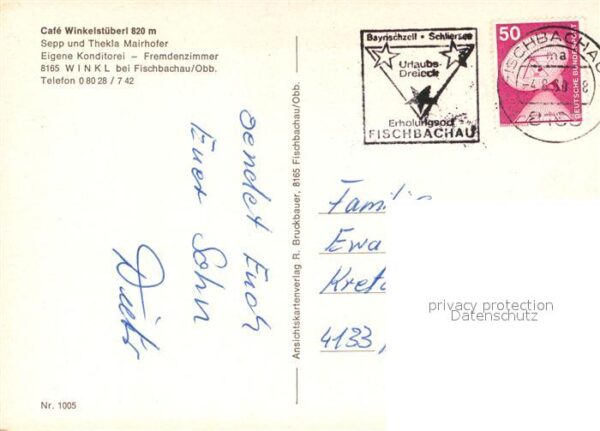 Café Winkelstüberl 820 m
Sepp und Thekla Mairhofer
Eigene Konditorei – Fremdenzimmer
8165 WINKL bei Fischbachau/Obb.
Telefon 0 80 28 / 7 42
sendet Euch
Euer Sohn
Ansichtskartenverlag R. Bruckbauer, 8165 Fischbachau/Obb.
Bayrischzell • Schliersee
Urlaubs-
Dreieck
Erholungsort
FISCHBACHAU
50
DEUTSCHE BUNDESPOST
FISCHBACHAU
Ewa
Kret
4133,
privacy protection
Datenschutz
Nr. 1005